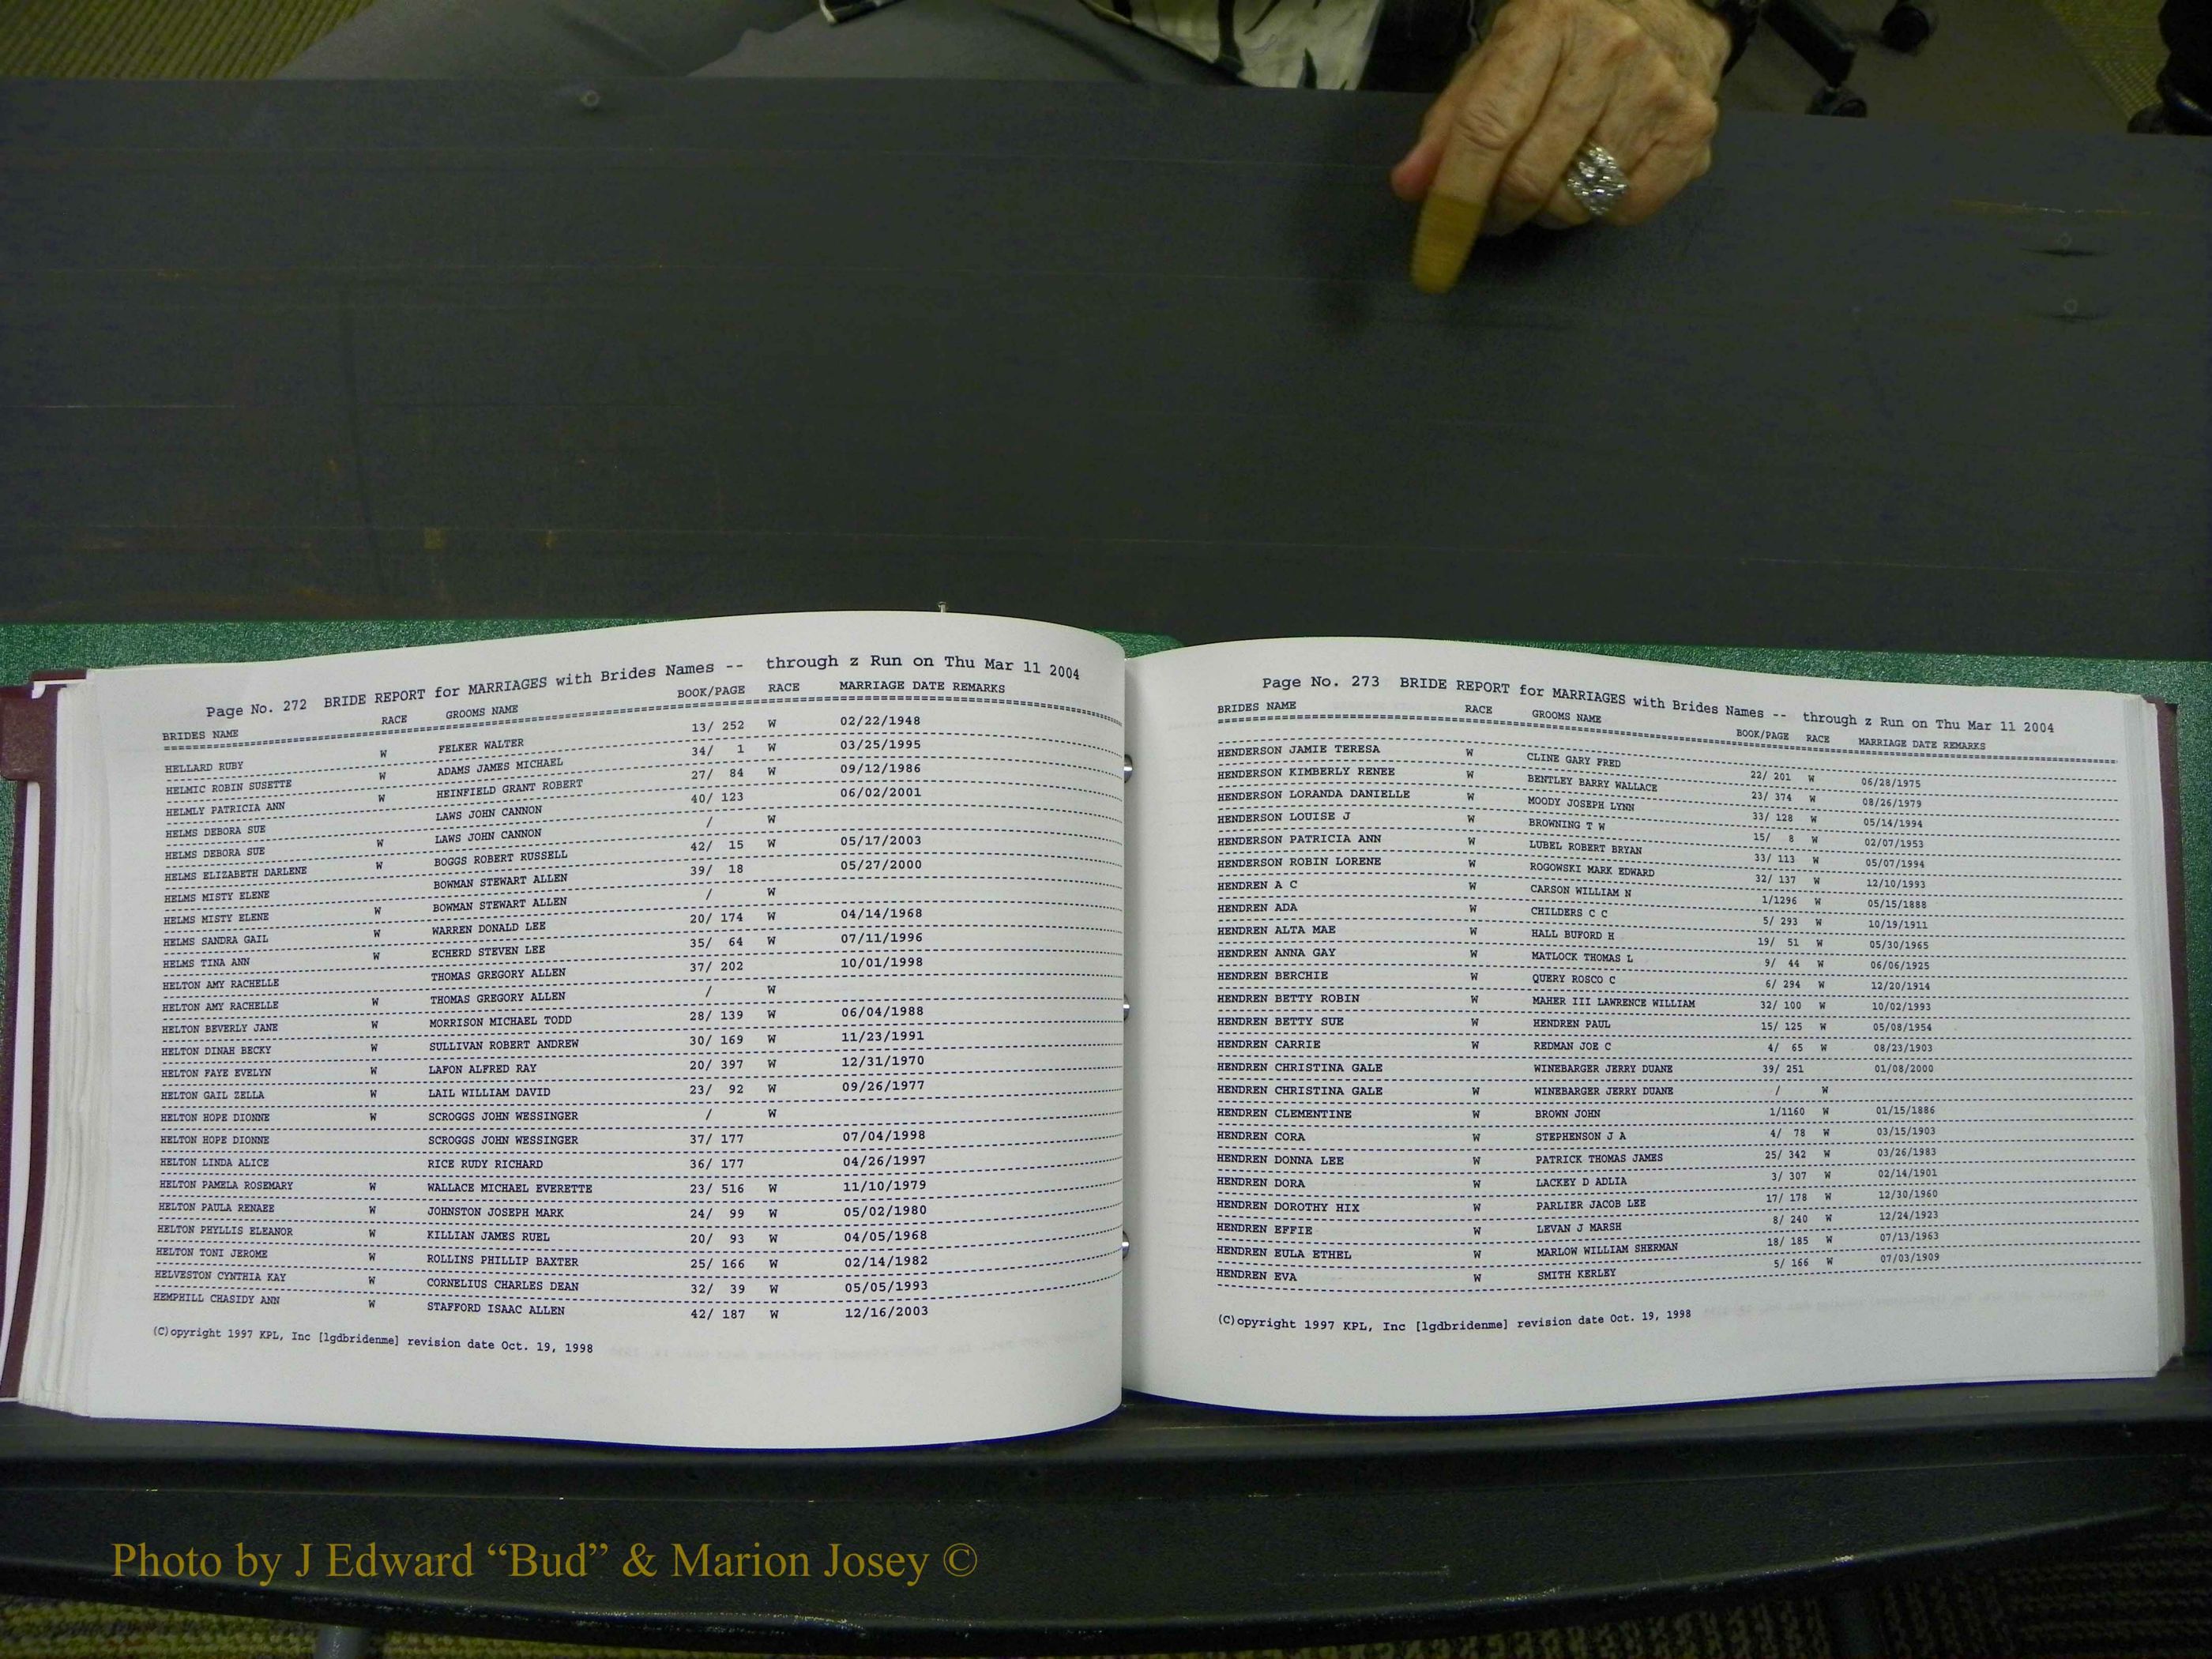 Page No. 272 BRIDE REPORT for MARRIAGES with Brides Names -- through z Run on Thu Mar 11 2004
BRIDES NAME RACE GROOMS NAME BOOK/PAGE RACE MARRIAGE DATE REMARKS
HELLARD RUBY W FELKER WALTER 13/ 252 W 02/22/1948
HELMIC ROBIN SUSETTE W ADAMS JAMES MICHAEL 34/ 1 W 03/25/1995
HELMLY PATRICIA ANN W HEINFIELD GRANT ROBERT 27/ 84 W 09/12/1986
HELMS DEBORA SUE LAWS JOHN CANNON 40/ 123 06/02/2001
HELMS DEBORA SUE W LAWS JOHN CANNON / W
HELMS ELIZABETH DARLENE W BOGGS ROBERT RUSSELL 42/ 15 W 05/17/2003
HELMS MISTY ELENE BOWMAN STEWART ALLEN 39/ 18 05/27/2000
HELMS MISTY ELENE W BOWMAN STEWART ALLEN / W
HELMS SANDRA GAIL W WARREN DONALD LEE 20/ 174 W 04/14/1968
HELMS TINA ANN W ECHERD STEVEN LEE 35/ 64 W 07/11/1996
HELTON AMY RACHELLE THOMAS GREGORY ALLEN 37/ 202 10/01/1998
HELTON AMY RACHELLE W THOMAS GREGORY ALLEN / W
HELTON BEVERLY JANE W MORRISON MICHAEL TODD 28/ 139 W 06/04/1988
HELTON DINAH BECKY W SULLIVAN ROBERT ANDREW 30/ 169 W 11/23/1991
HELTON FAYE EVELYN W LAFON ALFRED RAY 20/ 397 W 12/31/1970
HELTON GAIL ZELLA W LAIL WILLIAM DAVID 23/ 92 W 09/26/1977
HELTON HOPE DIONNE W SCROGGS JOHN WESSINGER / W
HELTON HOPE DIONNE SCROGGS JOHN WESSINGER 37/ 177 07/04/1998
HELTON LINDA ALICE RICE RUDY RICHARD 36/ 177 04/26/1997
HELTON PAMELA ROSEMARY W WALLACE MICHAEL EVERETTE 23/ 516 W 11/10/1979
HELTON PAULA RENAEE W JOHNSTON JOSEPH MARK 24/ 99 W 05/02/1980
HELTON PHYLLIS ELEANOR W KILLIAN JAMES RUEL 20/ 93 W 04/05/1968
HELTON TONI JEROME W ROLLINS PHILLIP BAXTER 25/ 166 W 02/14/1982
HELVESTON CYNTHIA KAY W CORNELIUS CHARLES DEAN 32/ 39 W 05/05/1993
HEMPHILL CHASIDY ANN W STAFFORD ISAAC ALLEN 42/ 187 W 12/16/2003
(C)opyright 1997 KPL, Inc [lgdbridenme] revision date Oct. 19, 1998
Page No. 273 BRIDE REPORT for MARRIAGES with Brides Names -- through z Run on Thu Mar 11 2004
BRIDES NAME RACE GROOMS NAME BOOK/PAGE RACE MARRIAGE DATE REMARKS
HENDERSON JAMIE TERESA W CLINE GARY FRED 22/ 201 W 06/28/1975
HENDERSON KIMBERLY RENEE W BENTLEY BARRY WALLACE 23/ 374 W 08/26/1979
HENDERSON LORANDA DANIELLE W MOODY JOSEPH LYNN 33/ 128 W 05/14/1994
HENDERSON LOUISE J W BROWNING T W 15/ 8 W 02/07/1953
HENDERSON PATRICIA ANN W LUBEL ROBERT BRYAN 33/ 113 W 05/07/1994
HENDERSON ROBIN LORENE W ROGOWSKI MARK EDWARD 32/ 137 W 12/10/1993
HENDREN A C W CARSON WILLIAM N 1/1296 W 05/15/1888
HENDREN ADA W CHILDERS C C 5/ 293 W 10/19/1911
HENDREN ALTA MAE W HALL BUFORD H 19/ 51 W 05/30/1965
HENDREN ANNA GAY W MATLOCK THOMAS L 9/ 44 W 06/06/1925
HENDREN BERCHIE W QUERY ROSCO C 6/ 294 W 12/20/1914
HENDREN BETTY ROBIN W MAHER III LAWRENCE WILLIAM 32/ 100 W 10/02/1993
HENDREN BETTY SUE W HENDREN PAUL 15/ 125 W 05/08/1954
HENDREN CARRIE W REDMAN JOE C 4/ 65 W 08/23/1903
HENDREN CHRISTINA GALE WINEBARGER JERRY DUANE 39/ 251 01/08/2000
HENDREN CHRISTINA GALE W WINEBARGER JERRY DUANE / W
HENDREN CLEMENTINE W BROWN JOHN 1/1160 W 01/15/1886
HENDREN CORA W STEPHENSON J A 4/ 78 W 03/15/1903
HENDREN DONNA LEE W PATRICK THOMAS JAMES 25/ 342 W 03/26/1983
HENDREN DORA W LACKEY D ADLIA 3/ 307 W 02/14/1901
HENDREN DOROTHY HIX W PARLIER JACOB LEE 17/ 178 W 12/30/1960
HENDREN EFFIE W LEVAN J MARSH 8/ 240 W 12/24/1923
HENDREN EULA ETHEL W MARLOW WILLIAM SHERMAN 18/ 185 W 07/13/1963
HENDREN EVA W SMITH KERLEY 5/ 166 W 07/03/1909
(C)opyright 1997 KPL, Inc [lgdbridenme] revision date Oct. 19, 1998
Photo by J Edward “Bud” & Marion Josey ©